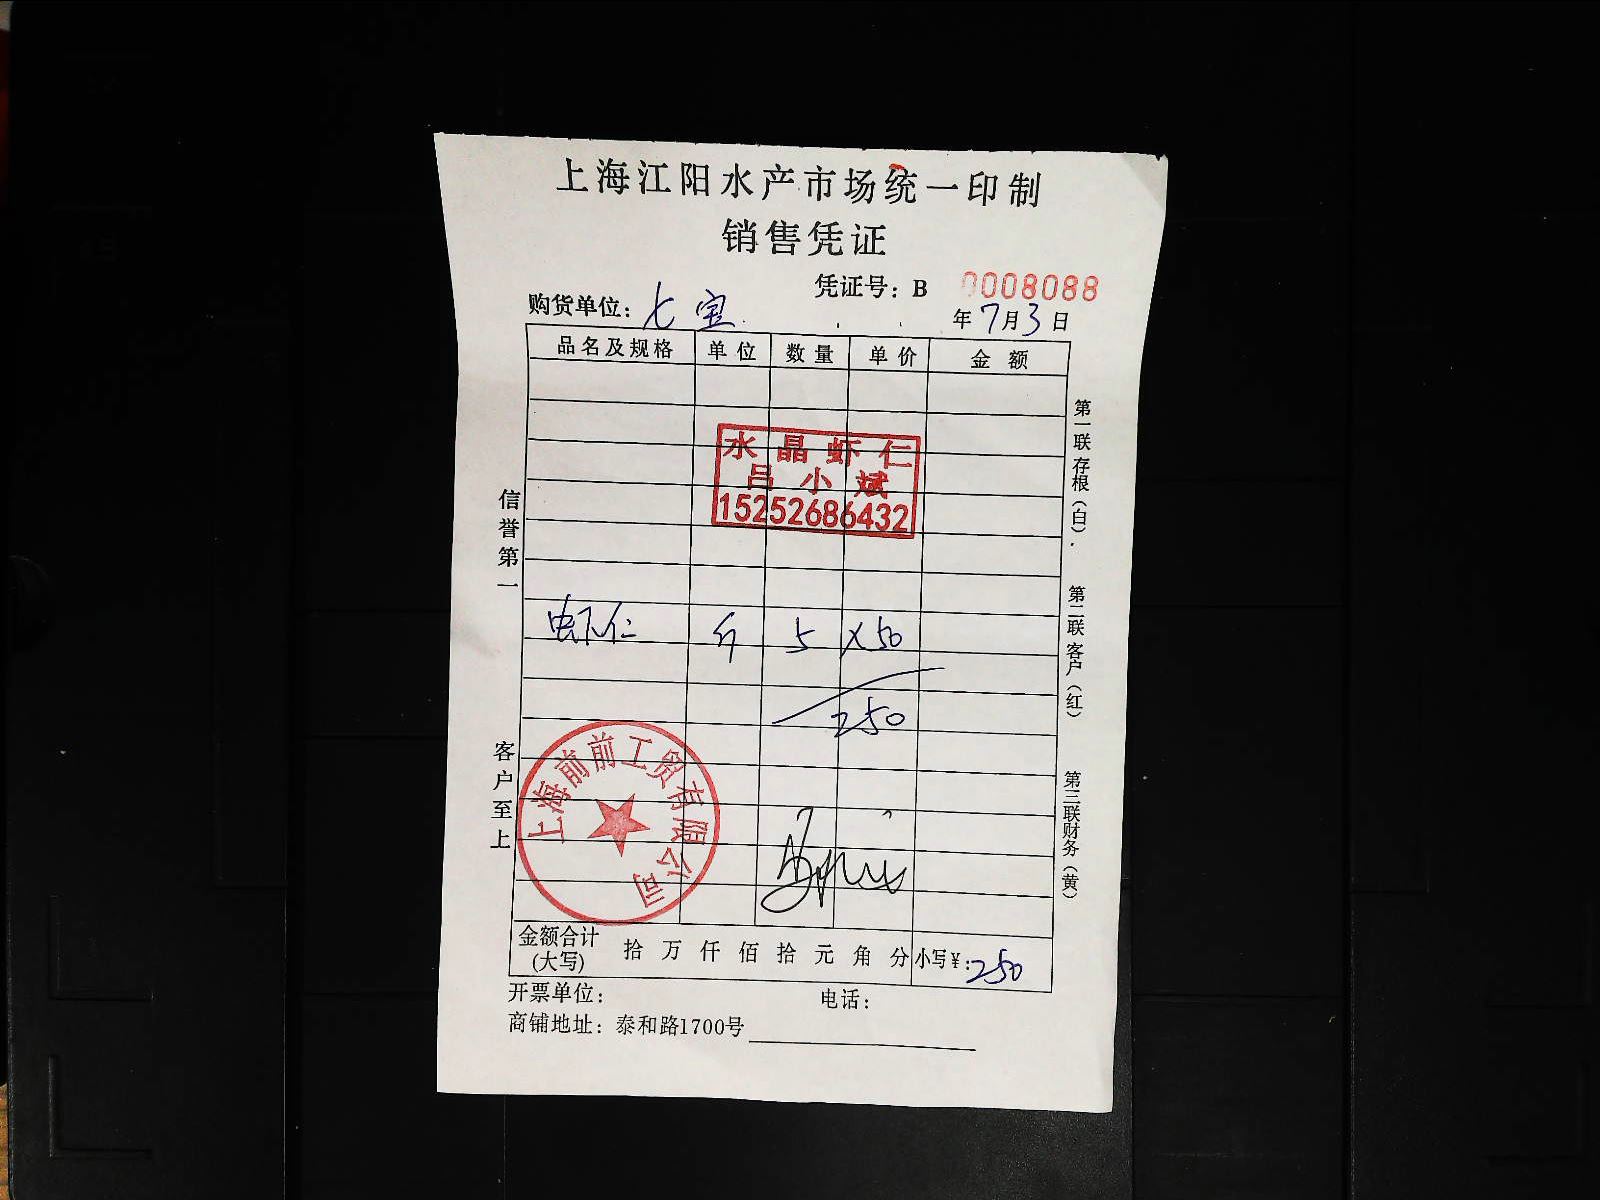 上海江阳水产市场统一印制
销售凭证
凭证号：B 0008088
购货单位：七宝
年7月3日
品名及规格 单位 数量 单价 金额
水晶虾仁
吕小斌
15252686432
虾仁 斤 5 X50
250
上海前前工贸有限公司
金额合计(大写) 拾万仟佰拾元角分 小写￥：250
开票单位： 电话：
商铺地址：泰和路1700号
信誉第一
客户至上
第一联存根（白）.
第二联客户（红）
第三联财务（黄）